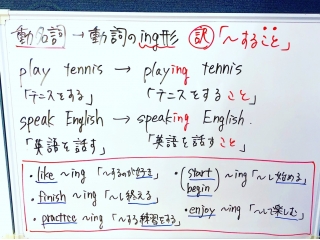 動名詞 → 動詞のing形 訳 「〜すること」
play tennis → playing tennis
「テニスをする」 「テニスをすること」
speak English → speaking English.
「英語を話す」 「英語を話すこと」
・like 〜ing 「〜するのが好き」 ・(start begin) 〜ing 「〜し始める」
・finish 〜ing 「〜し終える」
・practice 〜ing 「〜する練習をする」 ・enjoy 〜ing 「〜して楽しむ」